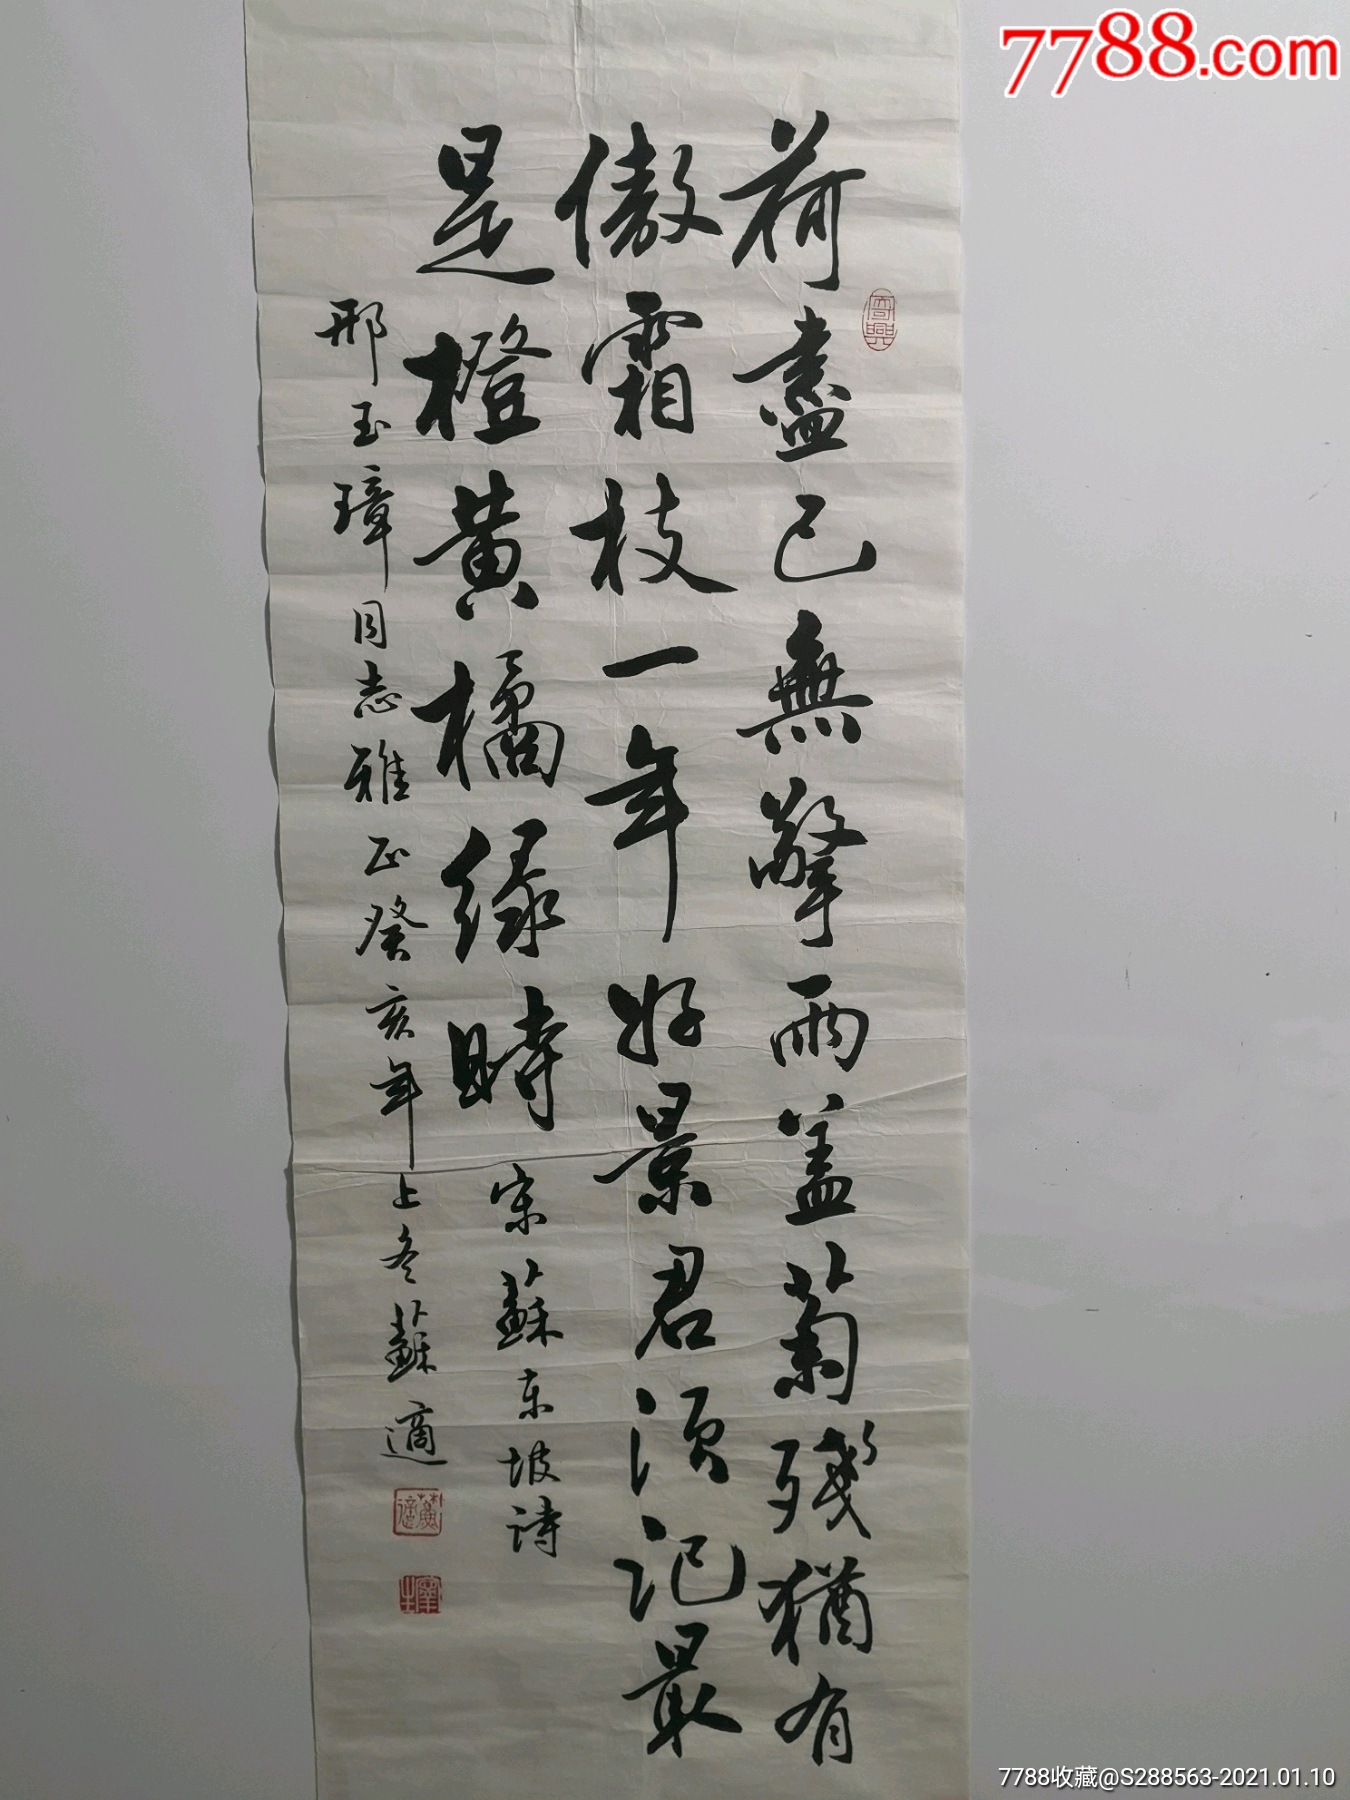 7788.com
荷盡已無擎雨盖菊殘猶有
傲霜枝一年好景君須记最
是橙黄橘绿時
宋蘇东坡诗
邢玉璋同志雅正癸亥年上冬蘇適
蘇適
7788收藏@S288563-2021.01.10